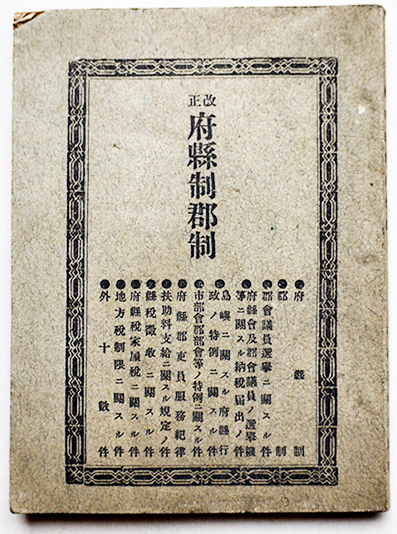 改正
府縣制郡制
●府縣制
●郡制
●郡會議員選擧ニ關スル件
●府縣會及郡會議員ノ選擧權
等ニ關スル納税届出ノ件
●島嶼ニ關スル府縣行
政ノ特例ニ關スル件
●市部會郡部會等ノ特例ニ關スル件
●府縣郡吏員服務紀律
●扶助料支給ニ關スル規定ノ件
●縣税徴收ニ關スル件
●府縣税家屋税ニ關スル件
●地方税制限ニ關スル件
●外十數件